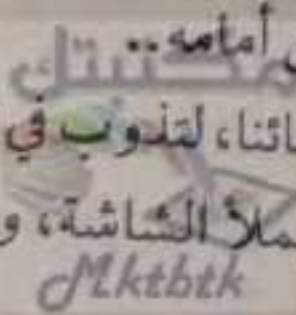 أمامه ..
مكتبتك
ائنا، لتذوب في
ملأ الشاشة، و
Mktbtk